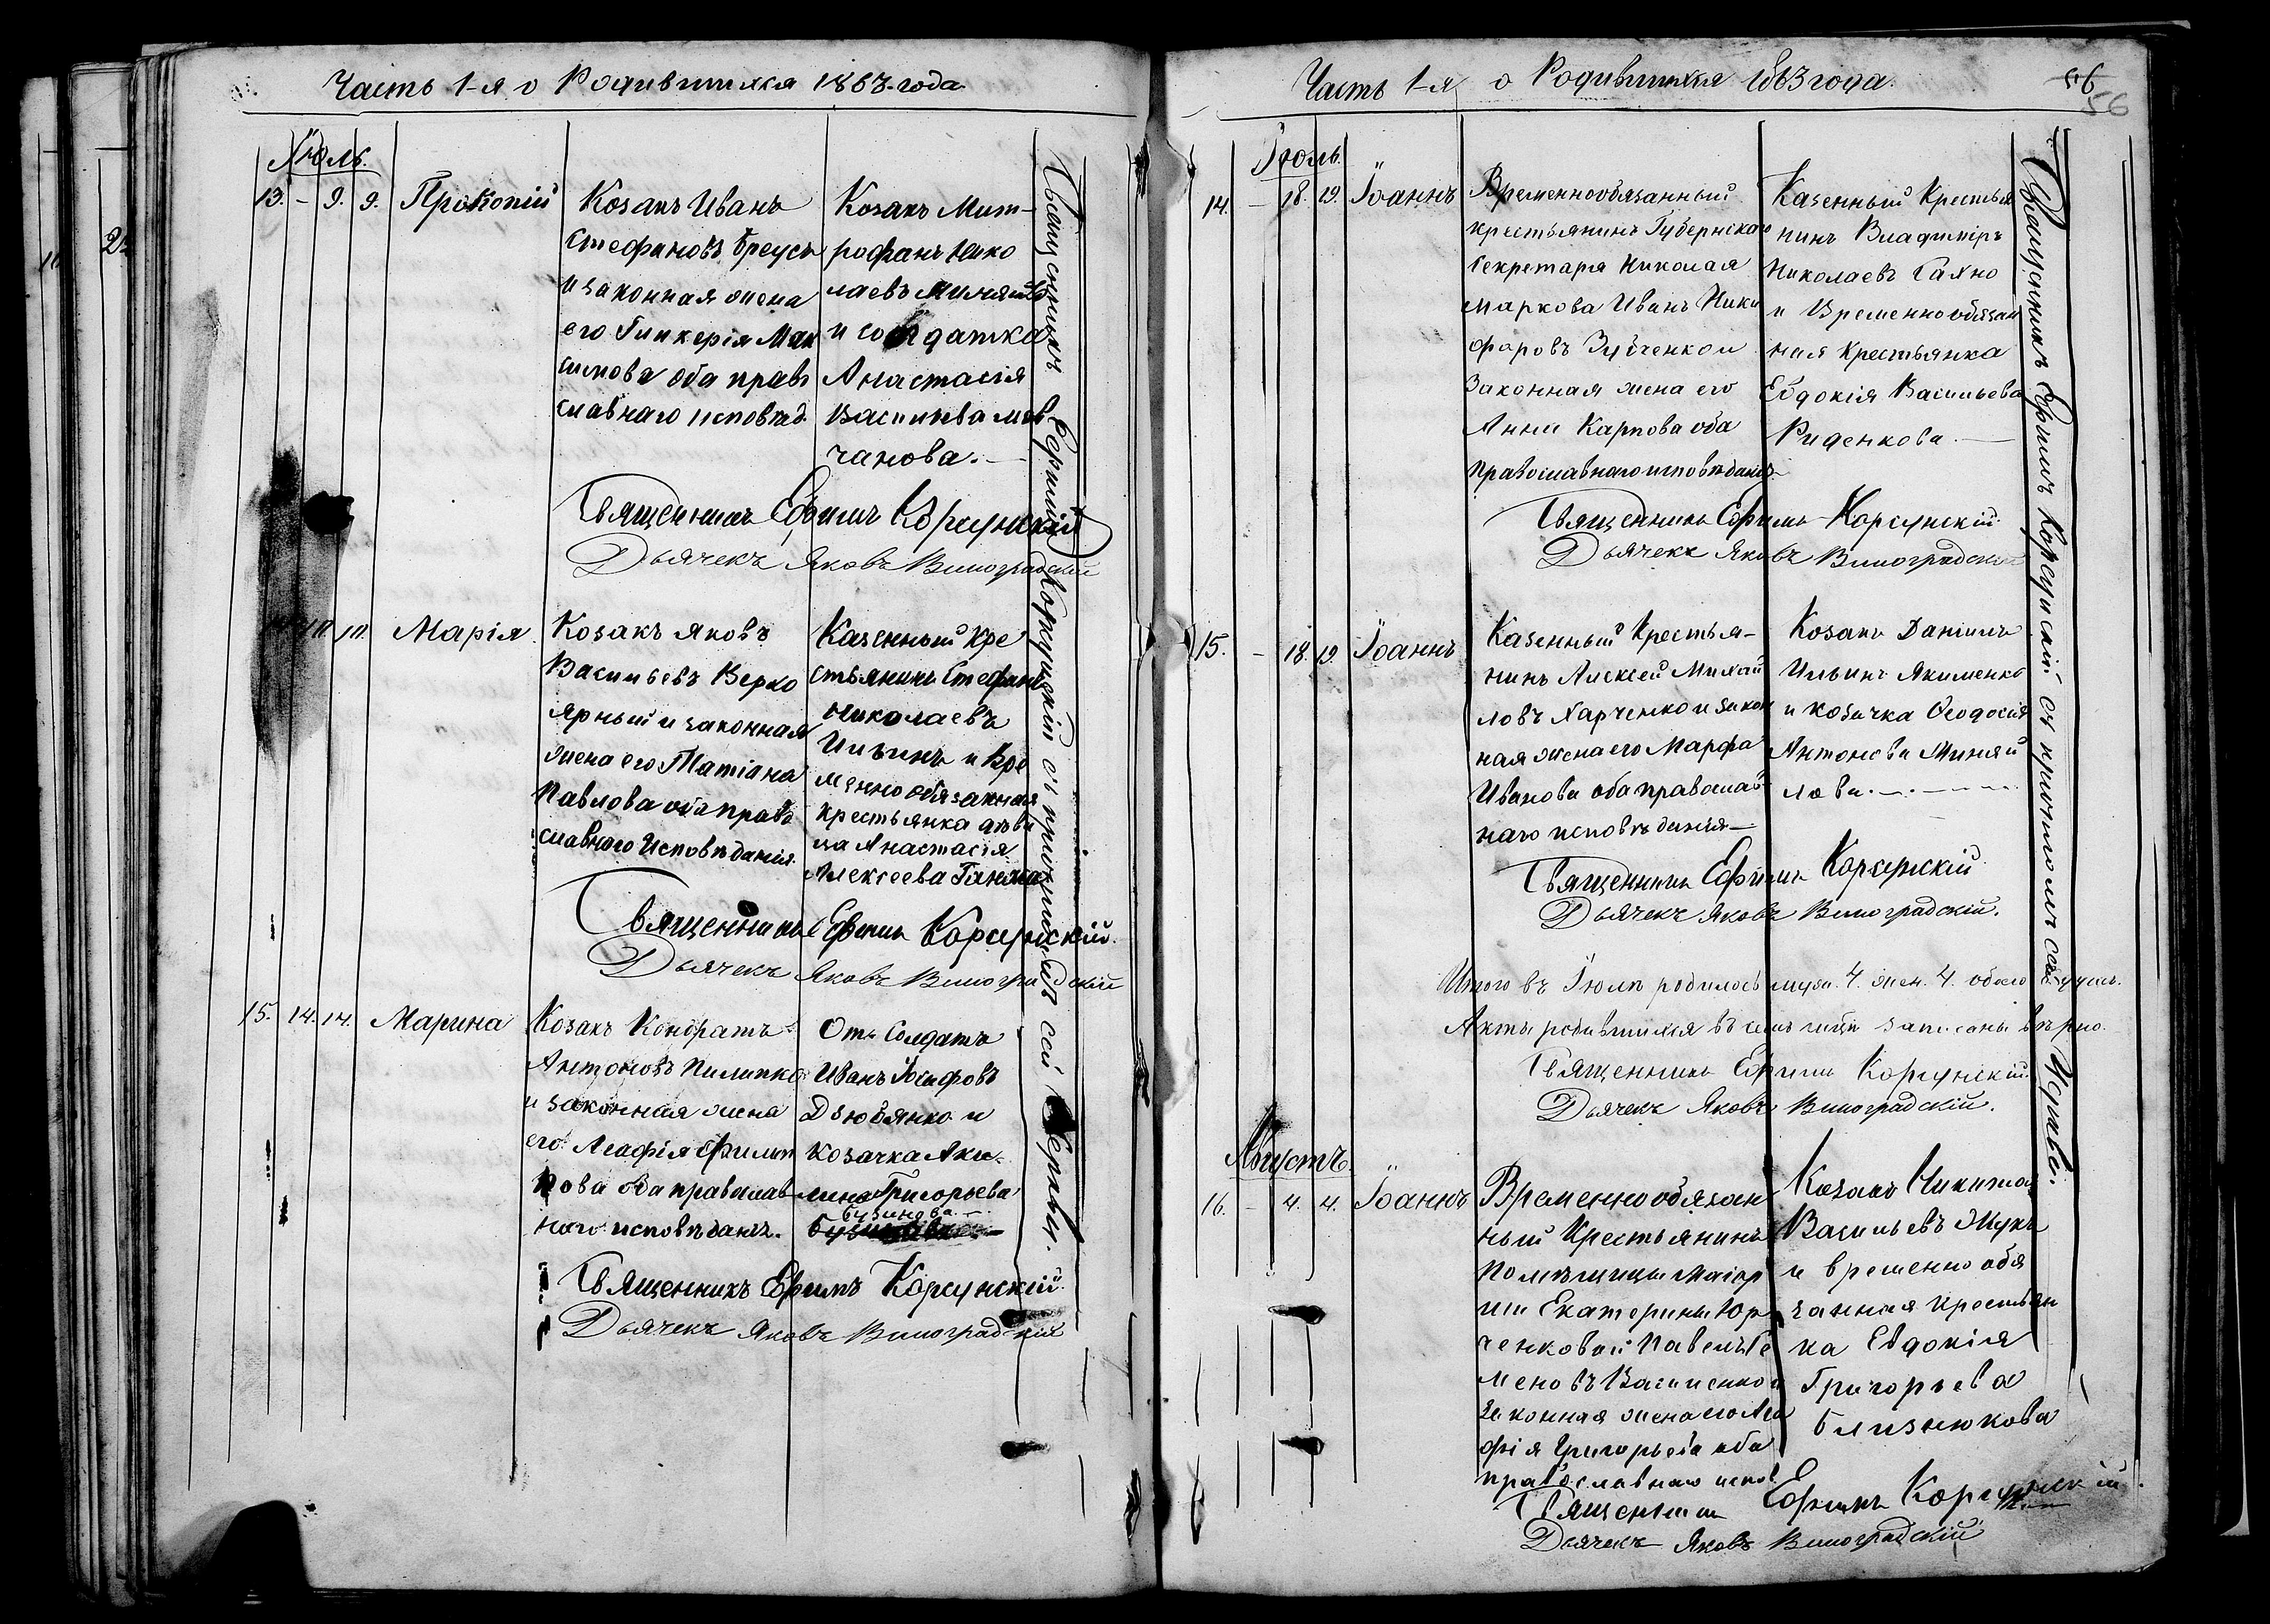 Часть 1-я о Родившихся 1863 года
Іюль.
13. - 9. 9. Прокопій
Козакъ Иванъ
Стефановъ Бреусъ
и законная жена
его Гликерія Мак
симова оба право
славнаго исповѣд.
Козакъ Мит-
рофанъ Нико
лаевъ
и солдатка
Анастасія
Васильева
чанова.-
Священникъ Ефимъ Корсунскій
Дьячекъ Яковъ Виноградскій
10. 10. Марія
Козакъ Яковъ
Васильевъ Верхо
ярный и законная
жена его Татіана
Павлова оба право
славного Исповѣданія.
Казенный Кре
стьянинъ Стефанъ
Николаевъ
Ильинъ и Вре
менно обязанная
крестьянка дѣви
ца Анастасія
Алексеева
Священникъ Ефимъ Корсунскій.
Дьячекъ Яковъ Виноградскій
15. 14. 14. Марина
Козакъ Кондратъ
Антоновъ Пилипко
и законная жена
его Агафія Филип
пова оба православ
наго исповѣданія.
Отс. Солдатъ
Иванъ Іосифовъ
Дзюбянко и
козачка Аки-
лина Григорьева
Бузинова.-
Священникъ Ефимъ Корсунскій
Дьячекъ Яковъ Виноградскій
Священникъ Ефимъ Корсунскій съ причтомъ сей Церкви.
Часть 1-я о Родившихся 1863 года.
56
56
Іюль.
14. - 18. 19. Іоаннъ
Временнообязанный
крестьянинъ Губернскаго
Секретаря Николая
Маркова Иванъ Ники
форовъ Зубченко и
Законная жена его
Анна Карпова оба
православнаго исповѣданія
Казенный Крестья
нинъ Владиміръ
Николаевъ Сахно
и Временнообязан
ная Крестьянка
Евдокія Васильева
Риденкова.-
Священникъ Ефимъ Корсунскій
Дьячекъ Яковъ Виноградскій
15. - 18. 19. Іоаннъ
Казенный Крестья-
нинъ Алексей Михай
ловъ Харченко и закон
ная жена его Марфа
Иванова оба православ
наго исповѣданія-
Козакъ Даніилъ
Ильинъ Якименко
и козачка Ѳеодосія
Антонова Миняй
лова.
Священникъ Ефимъ Корсунскій
Дьячекъ Яковъ Виноградскій.
Итого въ Іюлѣ родилось муж. 4. жен. 4. обоего 8 душъ.
Акты родившихся въ семъ записаны вѣрно.
Священникъ Ефимъ Корсунскій.
Дьячекъ Яковъ Виноградскій.
Августъ.
16. - 4. 4. Іоаннъ
Временно обязан
ный Крестьянинъ
Помѣщицы Маіор
ши Екатерины Юр
ченковой Павелъ Се
меновъ Василенко и
Законная жена его Ага
фія Григорьева оба
православнаго испов.
Козакъ Никита
Васильевъ Жукъ
и временно обя
занная крестьян
ка Евдокія
Григорьева
Близнюкова
Священникъ Ефимъ Корсунскій.
Дьячекъ Яковъ Виноградскій
Священникъ Ефимъ Корсунскій съ причтомъ сей Церкви.